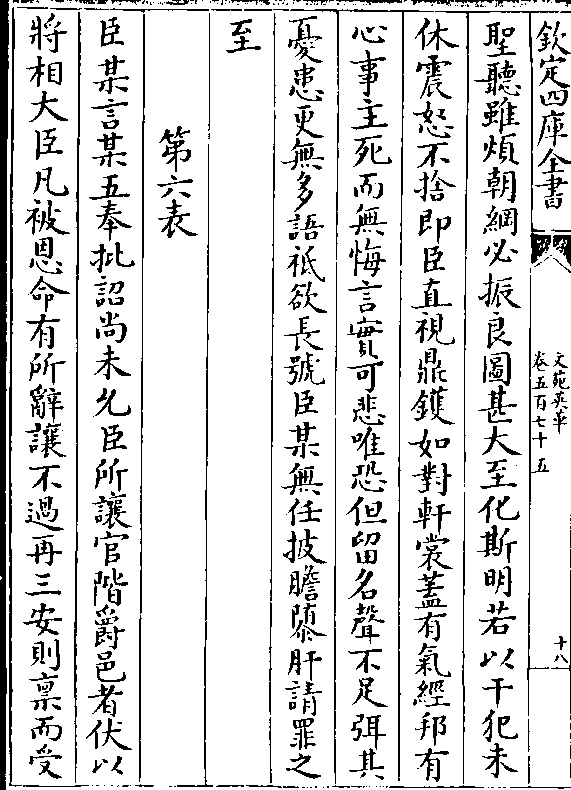 欽定四庫全書
文苑英華
卷五百七十五
十八
聖聽雖煩朝綱必振良圖甚大至化斯明若以干犯未
休震怒不捨即臣直視鼎鑊如對軒裳蓋有氣經邦有
心事主死而無悔言實可悲唯恐但留名聲不足弭其
憂患更無多語祗欲長號臣某無任披瞻隳肝請罪之
至
第六表
臣某言某五奉批詔尚未允臣所讓官階爵邑者伏以
將相大臣凡被恩命有所辭讓不過再三安則稟而受